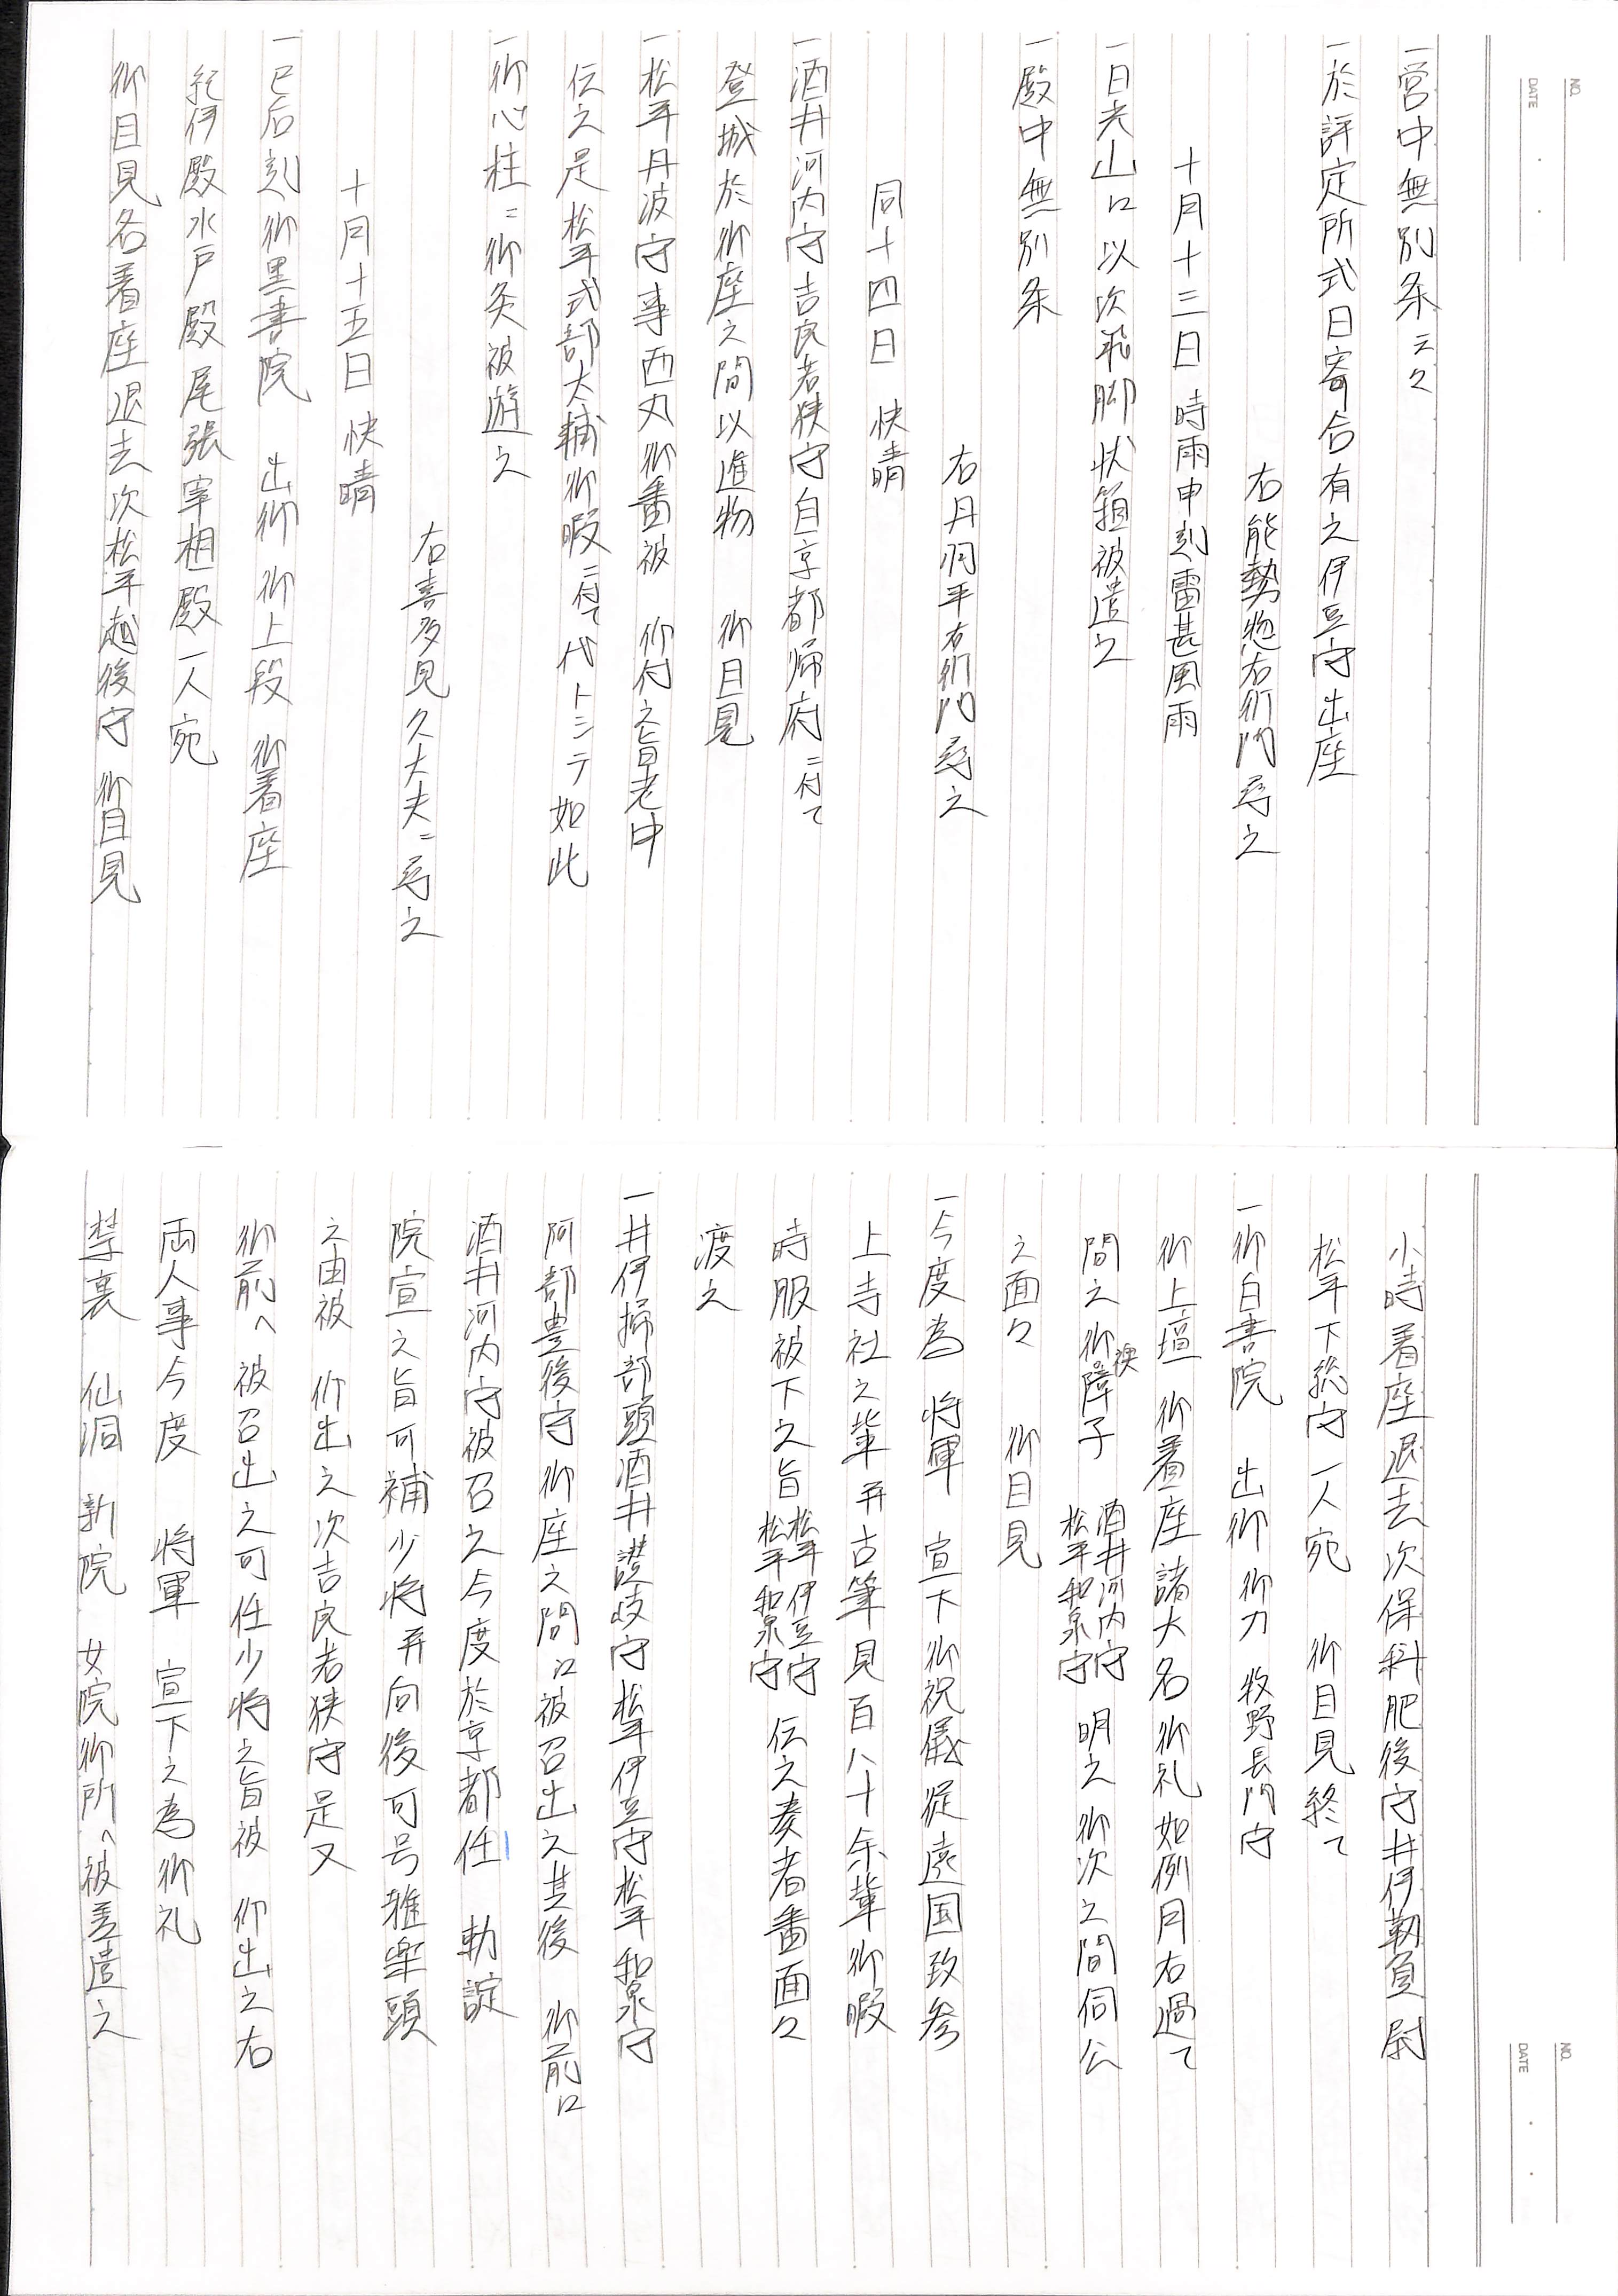 NO.
DATE
一営中無別条云々
一於評定所式日寄合有之伊豆守出座
右能勢惣右衛門尋之
十月十三日 時雨申刻雷甚風雨
一日光山江以次飛脚状箱被遣之
一殿中無別条
右丹羽平右衛門尋之
同十四日 快晴
一酒井河内守吉良若狭守自京都帰府ニ付て
登城於御座之間以進物 御目見
一松平丹波守事西丸御番被 仰付之旨老中
伝之是松平式部大輔御暇ニ付て代トシテ如此
一御心柱ニ御灸被遊之
右喜多見久大夫ニ尋之
十月十五日 快晴
一巳后刻御黒書院 出御 御上段 御着座
紀伊殿水戸殿尾張宰相殿一人宛
御目見各着座退去次松平越後守 御目見
NO.
DATE
小時着座退去次保科肥後守井伊靭負尉
松平下総守一人宛 御目見終て
一御白書院 出御 御刀 牧野長門守
御上壇 御着座諸大名御礼如例月右過て
間之御障子 襖 酒井河内守 松平和泉守 明之御次之間伺公
之面々 御目見
一今度為 将軍 宣下御祝儀従遠国致参
上寺社之輩并古筆見百八十余輩御暇
時服被下之旨 松平伊豆守 松平和泉守 伝之奏者番面々
渡之
一井伊掃部頭酒井讃岐守松平伊豆守松平和泉守
阿部豊後守御座之間江被召出之其後 御前江
酒井河内守被召之今度於京都任 勅諚
院宣之旨可補少将并向後可号雅楽頭
之由被 仰出之次吉良若狭守是又
御前へ被召出之可任少将之旨被 仰出之右
両人事今度 将軍 宣下之為御礼
禁裏 仙洞 新院 女院御所へ被差遣之